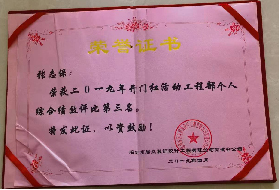 荣誉证书
张志保：
荣获二〇一九年开门红活动工程部个人
综合绩效评比第三名。
特发此证，以资鼓励！
二〇一九年四月